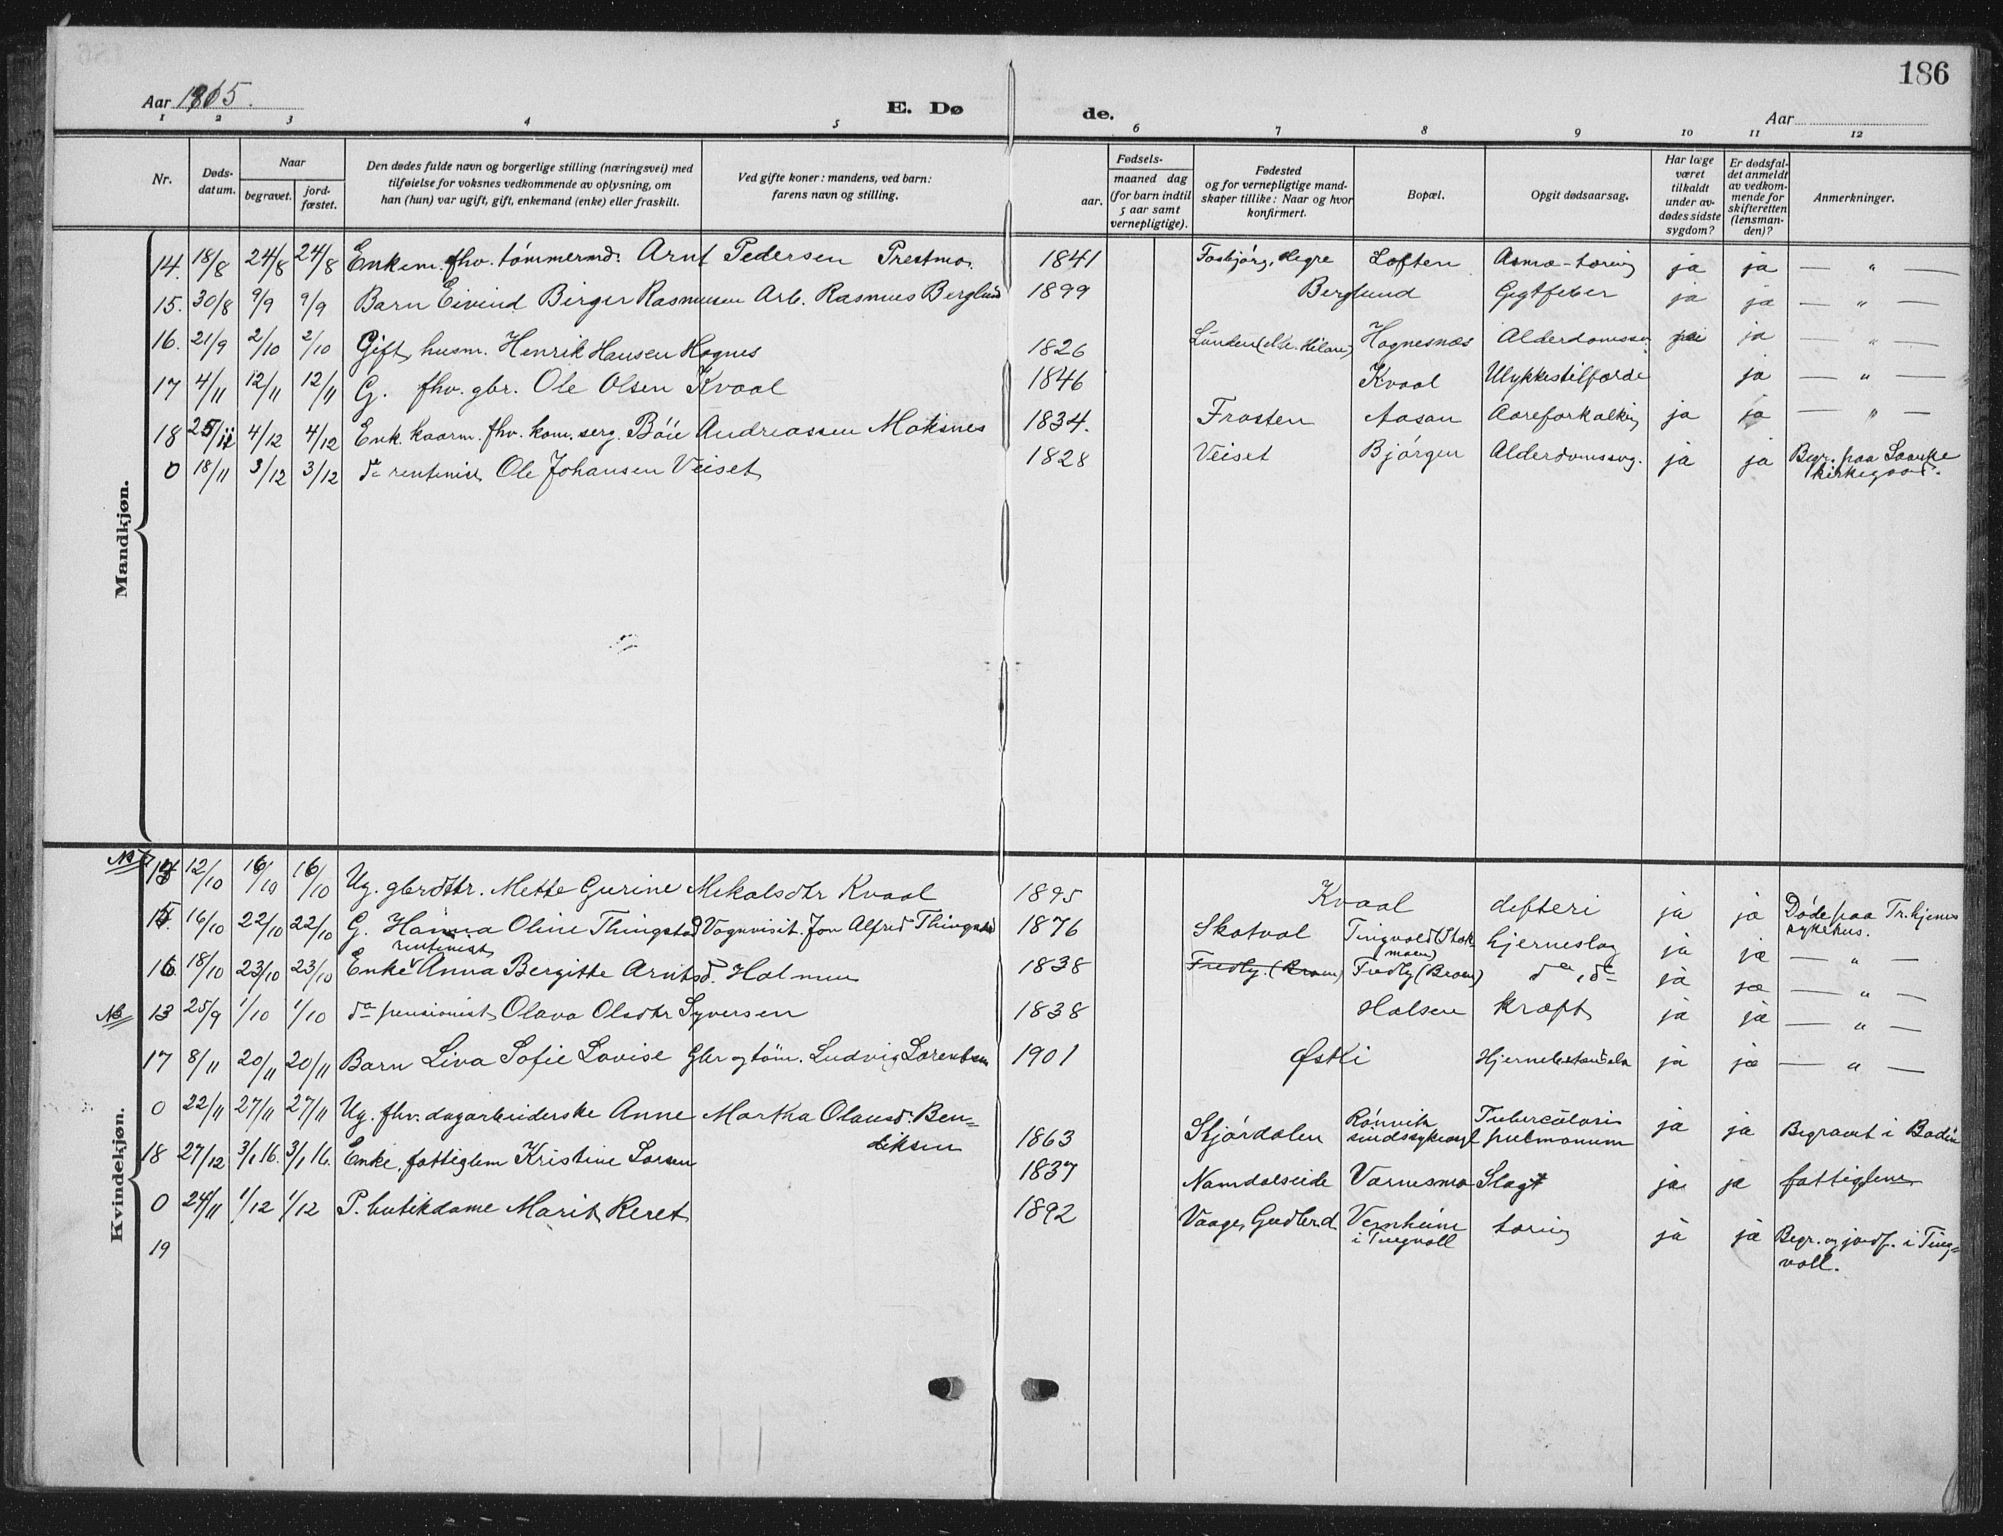 186
Aar 1915.
E. Dø de.
Aar
1 2 3 4 5 6 7 8 9 10 11 12
Nr.
Døds-
datum.
Naar
begravet.
jord-
fæstet.
Den dødes fulde navn og borgerlige stilling (næringsvei) med
tilføielse for voksnes vedkommende av oplysning, om
han (hun) var ugift, gift, enkemand (enke) eller fraskilt.
Ved gifte koner: mandens, ved barn:
farens navn og stilling.
Fødsels-
aar. maaned dag
(for barn indtil
5 aar samt
vernepligtige).
Fødested
og for vernepligtige mand-
skaper tillike: Naar og hvor
konfirmert.
Bopæl.
Opgit dødsaarsag.
Har læge
været
tilkaldt
under av-
dødes sidste
sygdom?
Er dødsfal-
det anmeldt
av vedkom-
mende for
skifteretten
(lensman-
den)?
Anmerkninger.
Mandkjøn.
14. 18/8 24/8 24/8 Enkem. fhv. tømmermd. Arnt Pedersen Prestmo. 1841 Hegre Loften Asma-tæring ja ja — " —
15. 30/8 9/9 9/9 Barn Eivind Birger Rasmusen Arb. Rasmus Berglund 1899 Berglund Gigtfeber ja ja — " —
16. 21/9 2/10 2/10 Gift husm. Henrik Hansen Hognes 1826 Hognesnæs Alderdomssv. ja — " —
17 4/11 12/11 12/11 G. fhv. gbr. Ole Olsen Kvaal 1846 Kvaal Ulykkestilfælde ja — " —
18 25/11 4/12 4/12 Enk. kaarm. fhv. kom. serg. Böie Andreassen Moksnes 1834. Frosten Aasan Aareforkalkng ja ja — " —
0 18/11 3/12 3/12 do rentenist Ole Johansen Veiset 1828 Veiset Bjørgen Alderdomssvg. ja ja Begr. paa Laanke
kirkegaard.
Kvindekjøn.
NB 12/10 16/10 16/10 Ug. gbrdttr. Mette Gurine Mikalsdtr Kvaal 1895 Kvaal difteri ja ja Døde paa Tr.hjems
sykehus.
15 16/10 22/10 22/10 G. Hanna Oline Thingstad Vognvisit. Jon Alfred Thingstad 1876 Skatval Tingvold (Stok-
moen) hjerneslag ja ja — " —
16 18/10 23/10 23/10 Enke rentenist Anna Bergitte Arntsd. Holmen 1838 Fredly (Broen) Fredly (Broen) do, do ja ja — " —
NB 13 25/9 1/10 1/10 do pensionist Olava Olsdtr Syversen 1838 Halsen kræft ja ja — " —
17 8/11 20/11 20/11 Barn Liva Sofie Lovise Gbr og tøm. Ludvig Lorentsen 1901 Øski ja ja — " —
0 22/11 27/11 27/11 Ug. fhv. dagarbeiderske Anne Martha Olausd. Ben-
diksen 1863 Stjørdalen Rønvik
sindssykeasyl Tuberculosis
pulmonum ja ja Begravet i Bodin
18 27/12 3/1 16. 3/1 16. Enke, fattiglem Kristine Larsen 1837 Namdalseide Værnesmo Slagt ja ja fattiglem
0 24/11 1/12 1/12 P. butikdame Marit Reret 1892 Vaage, Gudbrd. Vemheim
i Tingvoll tæring ja ja Begr. og jordf. i Ting-
voll.
19